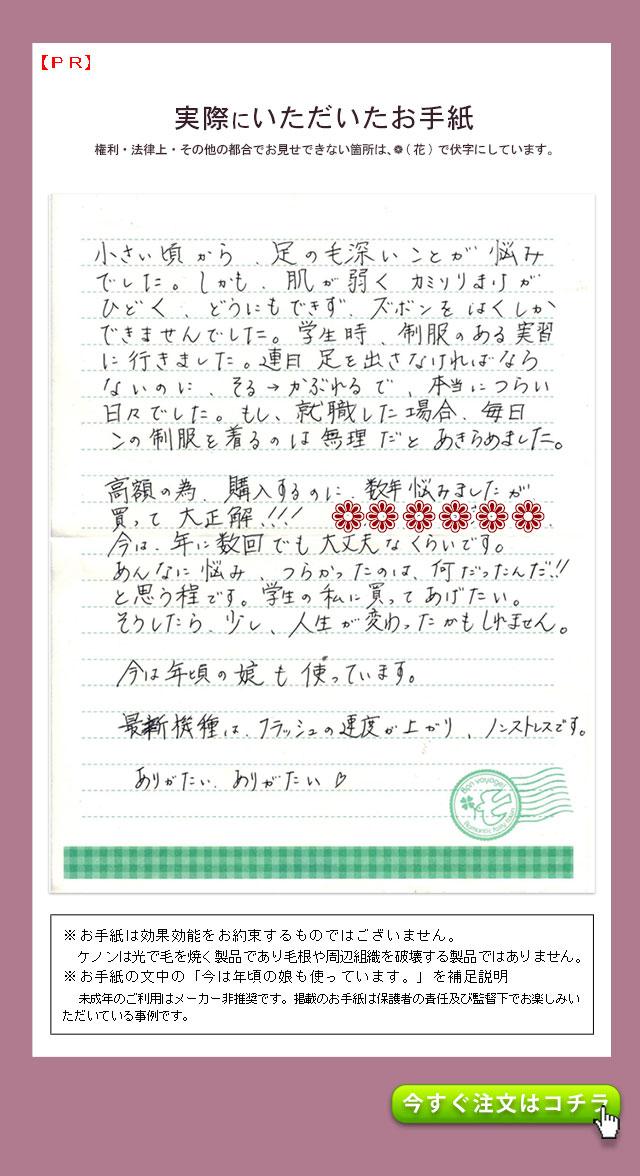 【ＰＲ】
実際にいただいたお手紙
権利・法律上・その他の都合でお見せできない箇所は、❁（花）で伏字にしています。
小さい頃から、足の毛深いことが悩み
でした。しかも、肌が弱くカミソリまけが
ひどく、どうにもできず、ズボンをはくしか
できませんでした。学生時、制服のある実習
に行きました。連日足を出さなければなら
ないのに、そる→かぶれるで、本当につらい
日々でした。もし、就職した場合、毎日
この制服を着るのは無理だとあきらめました。
高額の為、購入するのに、数年悩みましたが、
買って大正解!!!
今は、年に数回でも大丈夫なくらいです。
あんなに悩み、つらかったのは、何だったんだ!!
と思う程です。学生の私に買ってあげたい。
そうしたら、少し、人生が変わったかもしれません。
今は年頃の娘も使っています。
最新機種は、フラッシュの速度が上がり、ノンストレスです。
ありがたい、ありがたい♡
Bon voyage!
Romantic fairy town
※お手紙は効果効能をお約束するものではございません。
ケノンは光で毛を焼く製品であり毛根や周辺組織を破壊する製品ではありません。
※お手紙の文中の「今は年頃の娘も使っています。」を補足説明
未成年のご利用はメーカー非推奨です。掲載のお手紙は保護者の責任及び監督下でお楽しみい
ただいている事例です。
今すぐ注文はコチラ